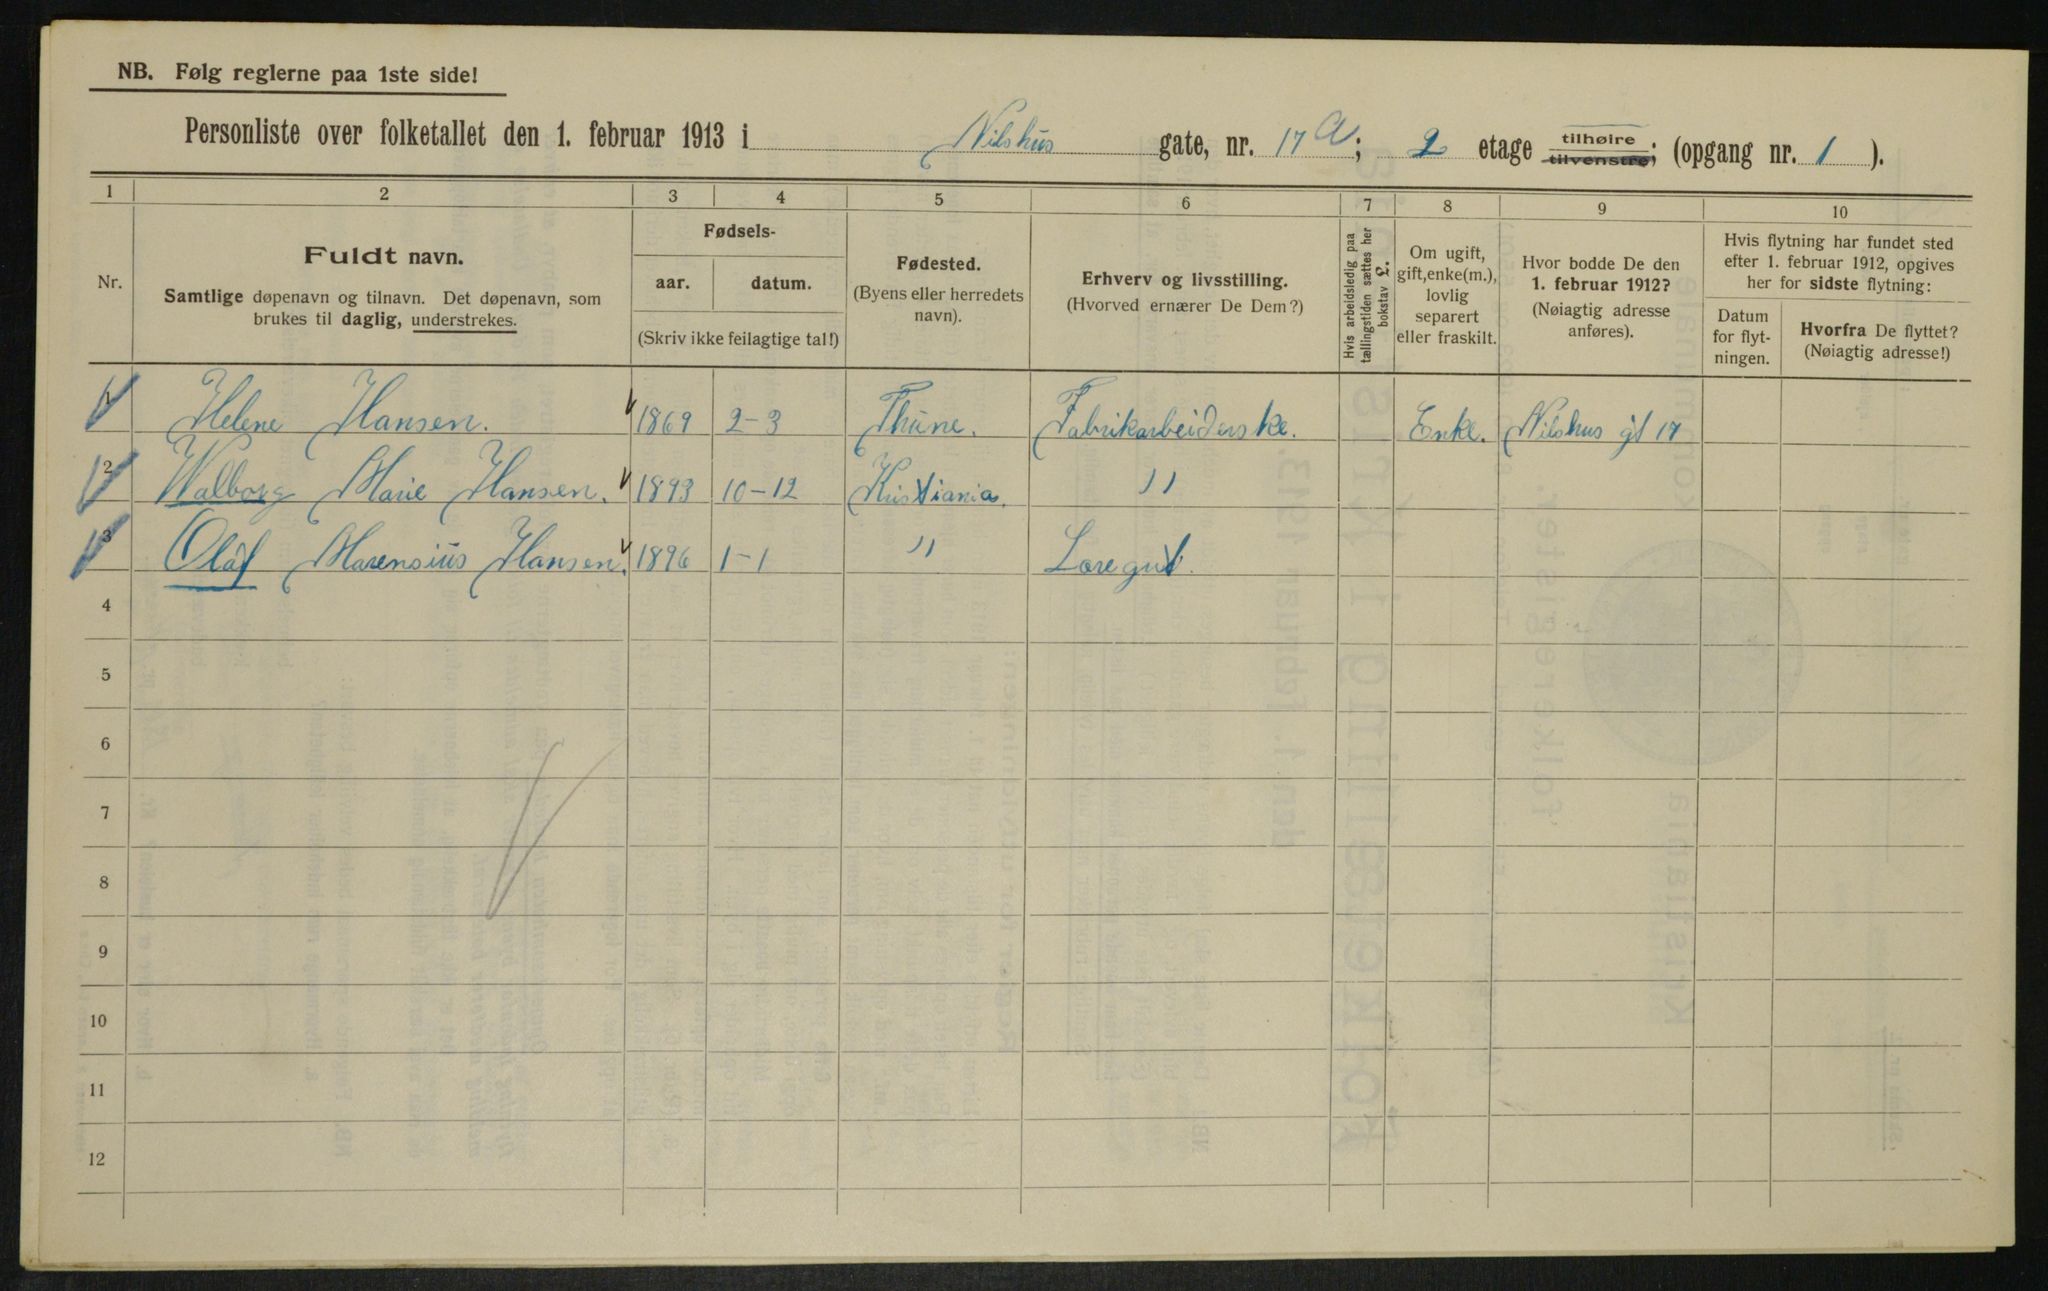 NB. Følg reglerne paa 1ste side!
Personliste over folketallet den 1. februar 1913 i Nilshus gate, nr. 17 a; 2 etage tilhøire tilvenstre; (opgang nr. 1 ).
1 2 3 4 5 6 7 8 9 10
Nr.
Fuldt navn.
Samtlige døpenavn og tilnavn. Det døpenavn, som
brukes til daglig, understrekes.
Fødsels-
aar. datum.
(Skriv ikke feilagtige tal!)
Fødested.
(Byens eller herredets
navn).
Erhverv og livsstilling.
(Hvorved ernærer De Dem?)
Hvis arbeidsledig paa
tællingstiden sættes her
bokstav £.
Om ugift,
gift, enke(m.),
lovlig
separert
eller fraskilt.
Hvor bodde De den
1. februar 1912?
(Nøiagtig adresse
anføres).
Hvis flytning har fundet sted
efter 1. februar 1912, opgives
her for sidste flytning:
Datum
for flyt-
ningen.
Hvorfra De flyttet?
(Nøiagtig adresse!)
1 Helene Hansen. 1869 2-3 Thune. Fabrikarbeiderske. Enke. Nilshus gt 17
2 Walborg Marie Hansen. 1893 10-12 Kristiania. "
3 Olaf Marensius Hansen. 1896 1-1 " Læregut.
4
5
6
7
8
9
10
11
12